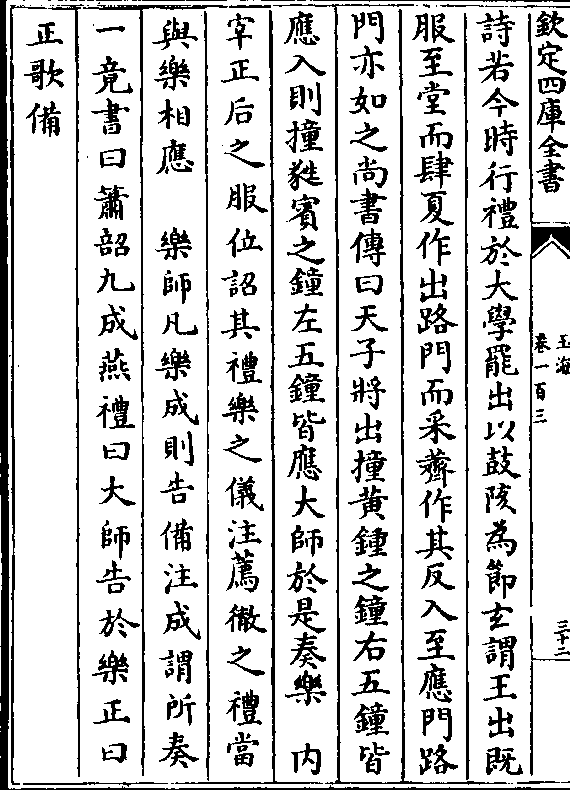 欽定四庫全書
玉海
卷一百三
三十二
詩若今時行禮於大學罷出以鼓陔為節玄謂王出既
服至堂而肆夏作出路門而采薺作其反入至應門路
門亦如之尚書傳曰天子將出撞黃鍾之鐘右五鐘皆
應入則撞蕤賓之鐘左五鐘皆應大師於是奏樂 内
宰正后之服位詔其禮樂之儀注薦徹之禮當
與樂相應 樂師凡樂成則告備注成謂所奏
一竟書曰簫韶九成燕禮曰大師告於樂正曰
正歌備